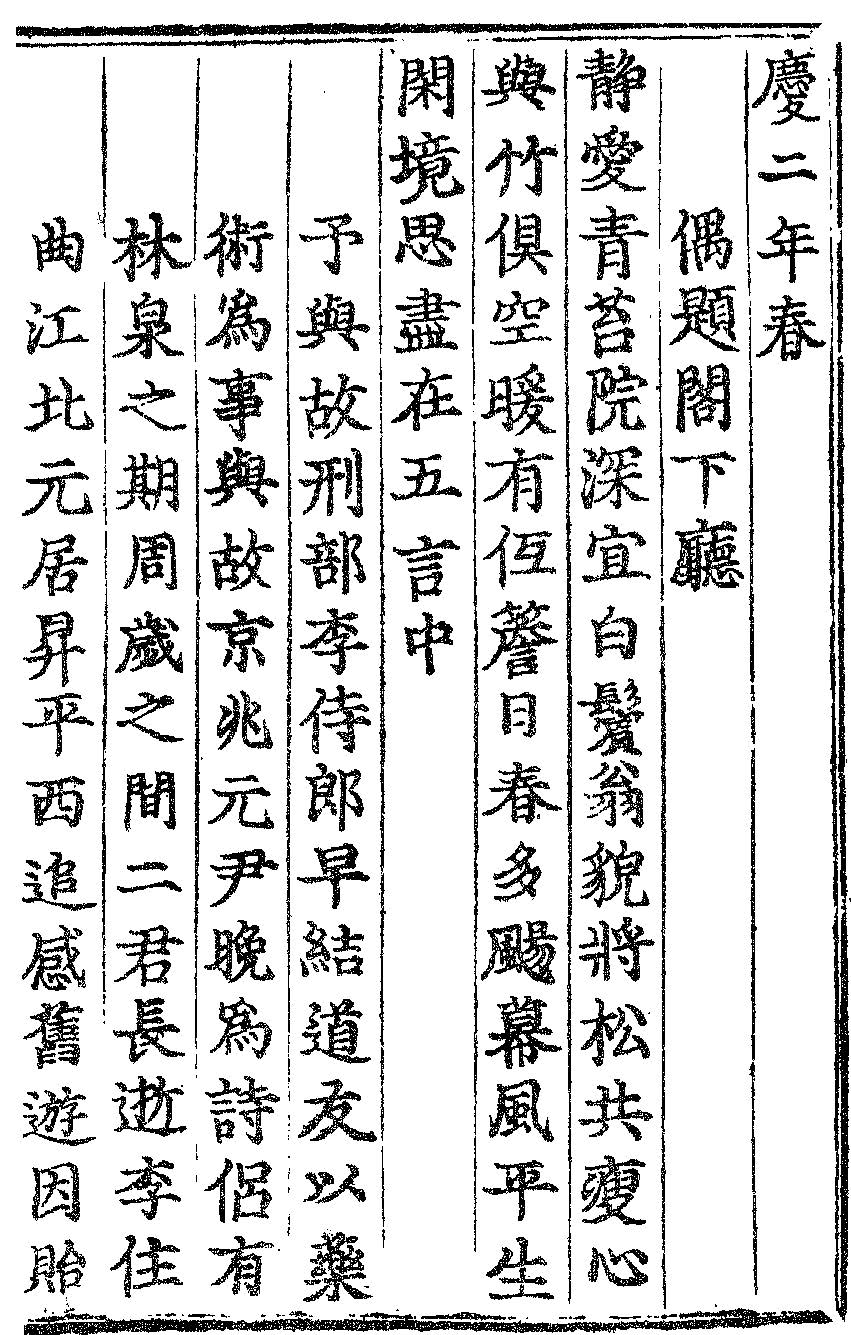 慶二年春
偶題閤下廳
静愛青苔院深宜白鬢翁貌將松共瘦心
與竹俱空暖有低簷日春多颺幕風平生
閑境思盡在五言中
予與故刑部李侍郎早結道友以藥
術爲事與故京兆元尹晚爲詩侶有
林泉之期周歲之間二君長逝李住
曲江北元居昇平西追感舊遊因貽